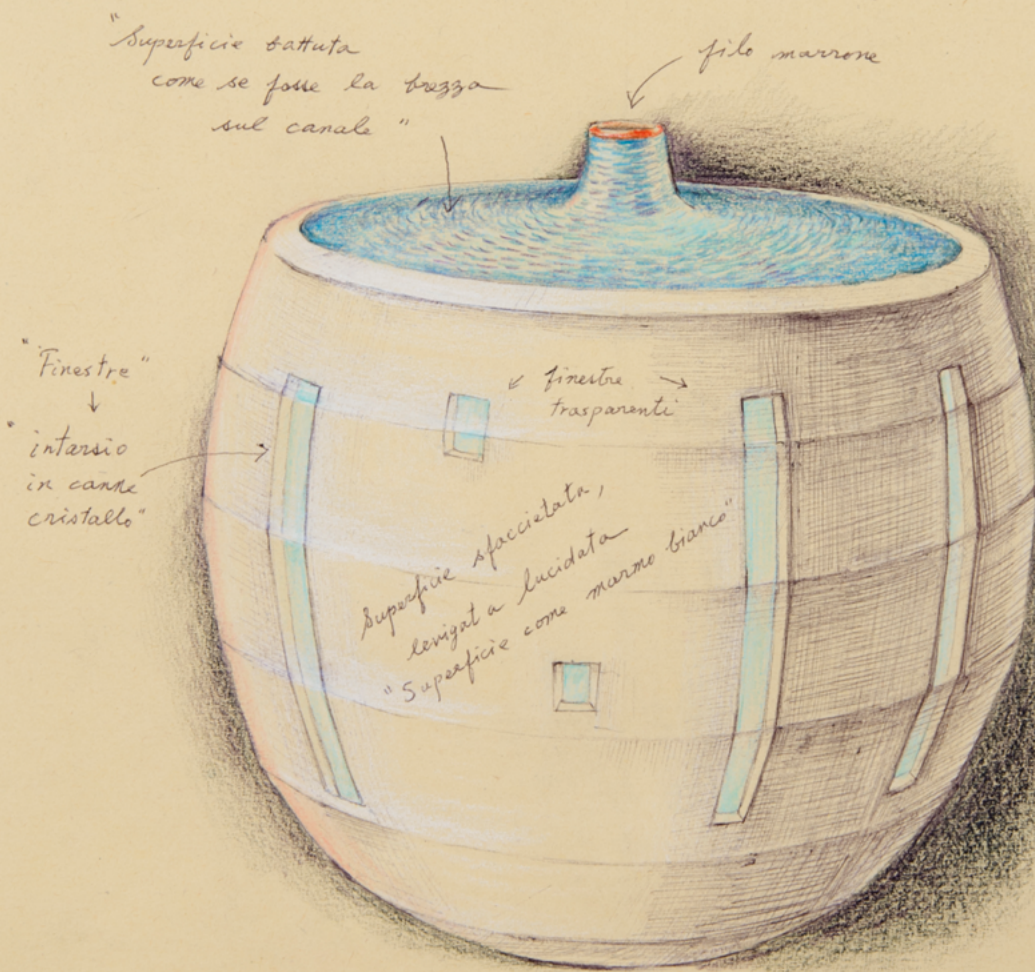 "Superficie battuta
come se fosse la brezza
sul canale"
filo marrone
"Finestre"
"intarsio
in canne
cristallo"
finestre
trasparenti
Superficie sfaccietata,
levigata lucidata
"Superficie come marmo bianco"